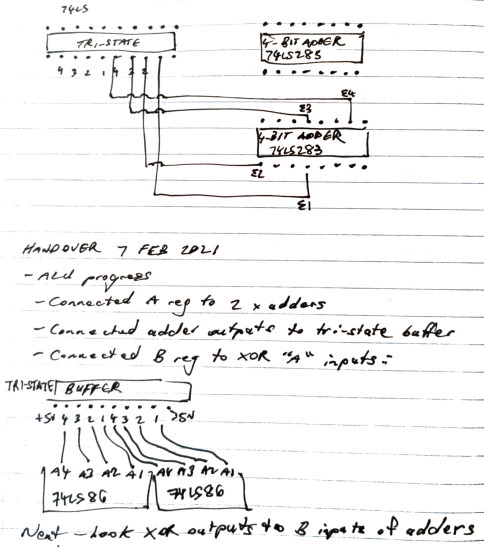 74LS
TRI-STATE
4-BIT ADDER
74LS283
4 3 2 1 4 3 2
Σ4
Σ3
4-BIT ADDER
74LS283
Σ2
Σ1
HANDOVER 7 FEB 2021
- ALU progress
- Connected A reg to 2 x adders
- Connected adder outputs to tri-state buffer
- Connected B reg to XOR "A" inputs:
TRI-STATE BUFFER
+5V 4 3 2 1 4 3 2 1
A4 A3 A2 A1 A4 A3 A2 A1
74LS86 74LS86
Next - hook XOR outputs to B inputs of adders